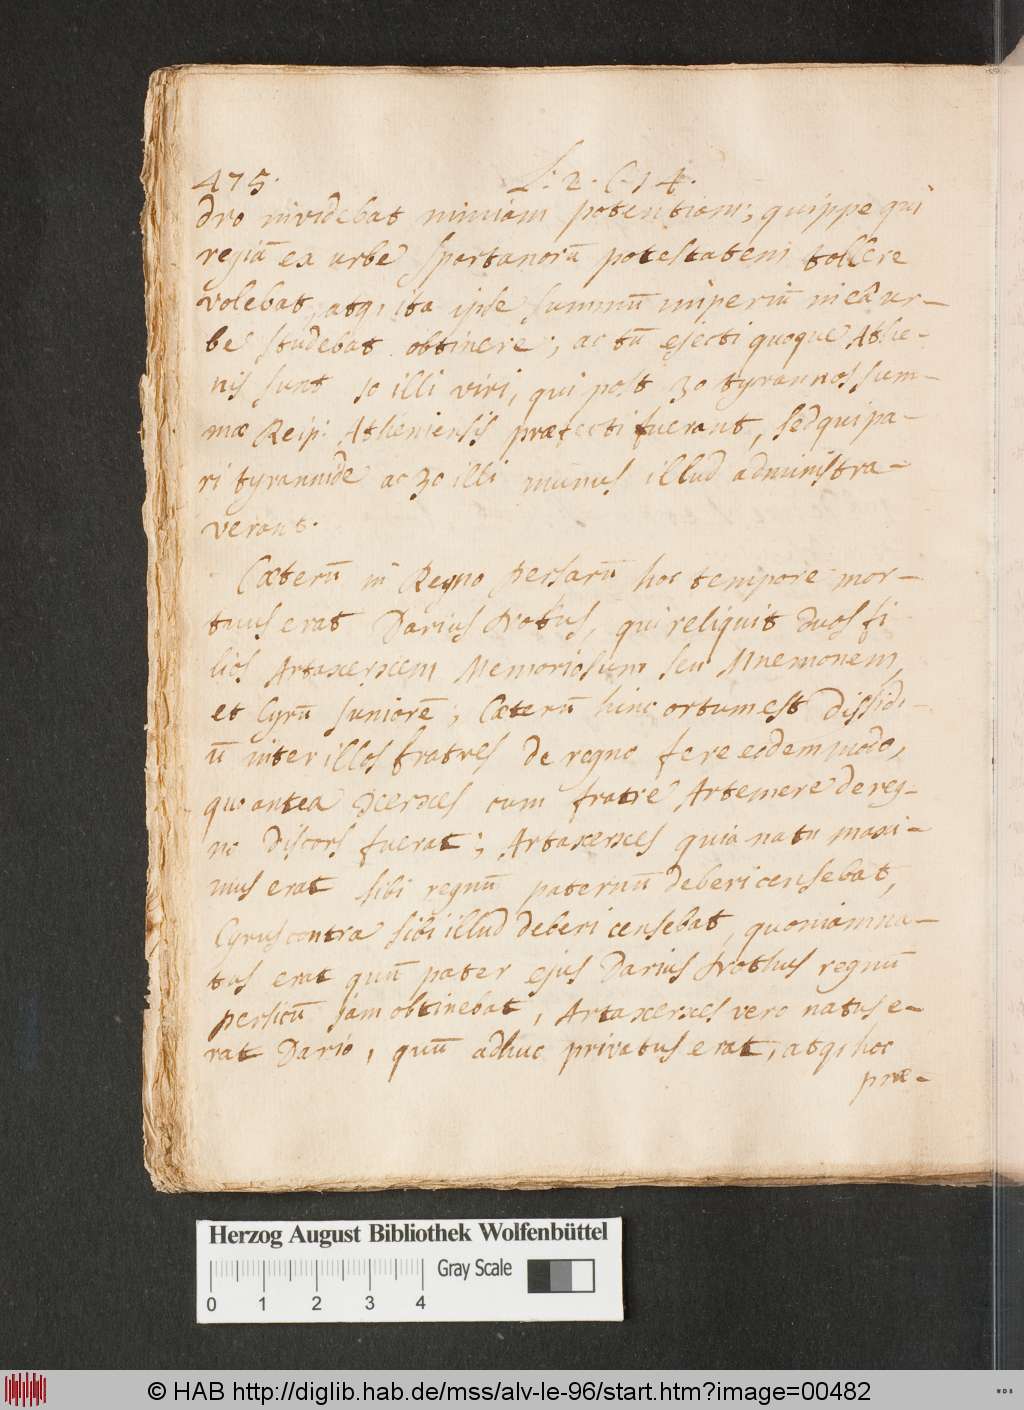 475. L: 2. C. 14.
dro invidebat nimiam potentiam; quippe qui
regiā ex urbe Spartanorū potestatem tollere
volebat, atq; ita ipse summū imperiū in eâ ur-
be studebat obtinere; ac tū ejecti quoque Athe-
nis sunt 10 illi viri, qui post 30 tyrannos sum-
mæ Reip: Atheniensis præfecti fuerant, sed qui pa-
ri tyrannide ac 30 illi munus illud administra-
verant.
Cæterū in Regno Persarū hoc tempore mor-
tuus erat Darius Nothus, qui reliquit duos fi
lios Artaxerxem Memoriosum seu Mnemonem,
et Cyrū juniorē; Cæterū hinc ortum est dissidi-
ū inter illos fratres de regno fere eodem modo,
quo antea Xerxes cum fratre Artemere de reg-
no discors fuerat; Artaxerxes quia natu maxi-
mus erat sibi regnū paternū deberi censebat,
Cyrus contra sibi illud deberi censebat, quoniam na-
tus erat quū pater ejus Darius Nothus regnū
persicū jam obtinebat, Artaxerxes vero natus e-
rat Dario, quū adhuc privatus erat, atq; hoc
præ-
Herzog August Bibliothek Wolfenbüttel
Gray Scale
0 1 2 3 4
© HAB http://diglib.hab.de/mss/alv-le-96/start.htm?image=00482